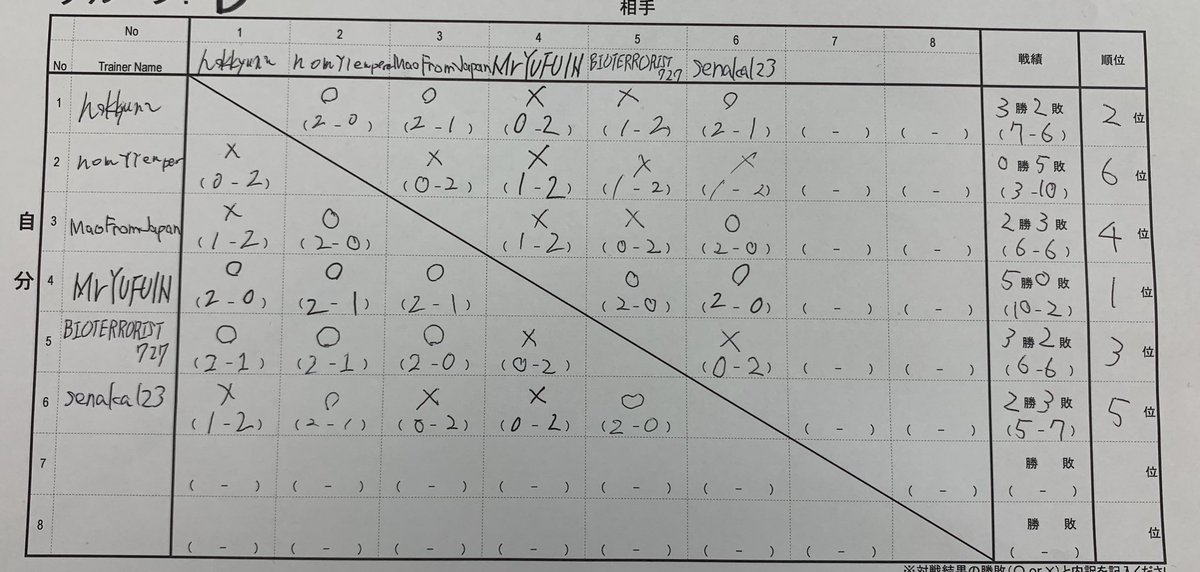 相手
No 1 2 3 4 5 6 7 8 戦績 順位
No Trainer Name hokkyunn MaoFromJapan MrYUFUIN BIOTERRORIST727 senaka123
1 ○ ○ × × ○ 3勝2敗 2位
(2-0) (2-1) (0-2) (1-2) (2-1) ( - ) ( - ) (7-6)
2 × × × × × 0勝5敗 6位
(0-2) (0-2) (1-2) (1-2) (1-2) ( - ) ( - ) (3-10)
自分
3 MaoFromJapan × ○ × × ○ 2勝3敗 4位
(1-2) (2-0) (1-2) (0-2) (2-0) ( - ) ( - ) (6-6)
4 MrYUFUIN ○ ○ ○ ○ ○ 5勝0敗 1位
(2-0) (2-1) (2-1) (2-0) (2-0) ( - ) ( - ) (10-2)
5 BIOTERRORIST727 ○ ○ ○ × × 3勝2敗 3位
(2-1) (2-1) (2-0) (0-2) (0-2) ( - ) ( - ) (6-6)
6 senaka123 × ○ × × ○ 2勝3敗 5位
(1-2) (2-1) (0-2) (0-2) (2-0) ( - ) ( - ) (5-7)
7 勝 敗 位
( - ) ( - ) ( - ) ( - ) ( - ) ( - ) ( - ) ( - )
8 勝 敗 位
( - ) ( - ) ( - ) ( - ) ( - ) ( - ) ( - ) ( - )